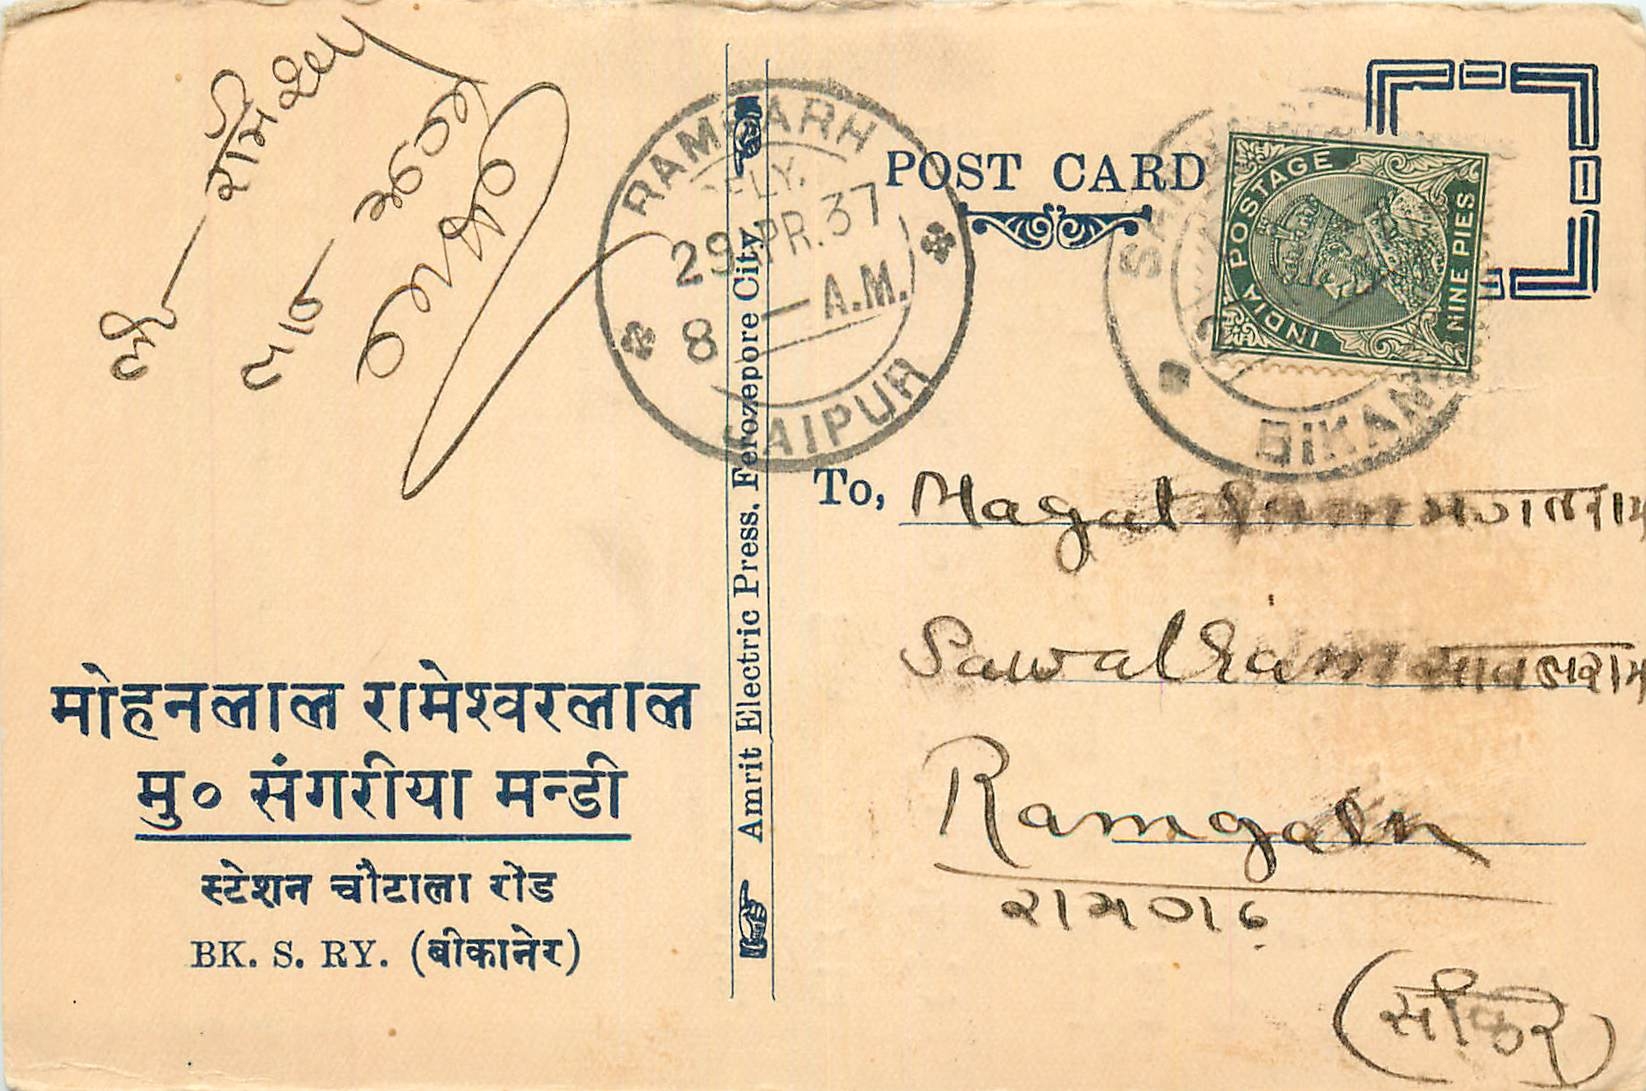 श्री — रामेश्वर
लाल
RAMGARH
DELY.
29 APR. 37
8 — A.M.
JAIPUR
POST CARD
INDIA POSTAGE
NINE PIES
BIKANER
Amrit Electric Press, Ferozepore City.
To, Magat Ram मगतराम
Sawalram सावलराम
Ramgarh
रामगढ़
(सीकर)
मोहनलाल रामेश्वरलाल
मु० संगरीया मन्डी
स्टेशन चौटाला रोड
BK. S. RY. (बीकानेर)